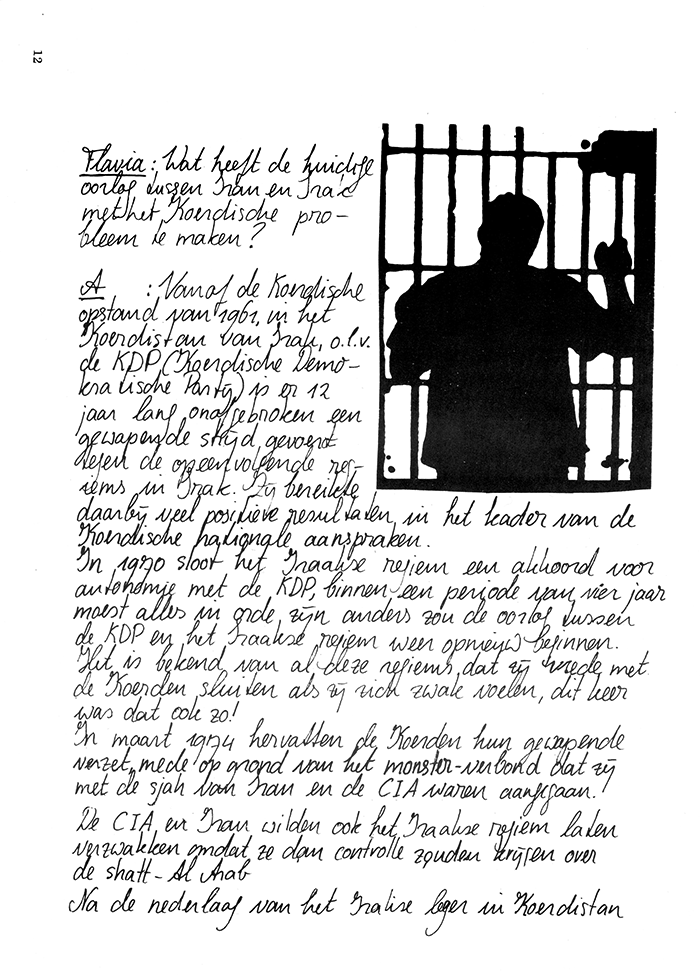 12
Flavia : Wat heeft de huidige
oorlog tussen Iran en Irak
met het Koerdische pro-
bleem te maken?
A : Vanaf de Koerdische
opstand van 1961, in het
Koerdistan van Irak, o.l.v.
de KDP (Koerdische Demo-
kratische Partij) is er 12
jaar lang onafgebroken een
gewapende strijd gevoerd
tegen de opeenvolgende reg-
iems in Irak. Zij bereikte
daarbij veel positieve resultaten, in het kader van de
Koerdische nationale aanspraken.
In 1970 sloot het Iraakse regiem een akkoord voor
autonomie met de KDP, binnen een periode van vier jaar
moest alles in orde zijn anders zou de oorlog tussen
de KDP en het Iraakse regiem weer opnieuw beginnen.
Het is bekend van al deze regiems dat zij vrede met
de Koerden sluiten als zij zich zwak voelen, dit keer
was dat ook zo!
In maart 1974 hervatten de Koerden hun gewapende
verzet, mede op grond van het monster-verbond dat zij
met de sjah van Iran en de CIA waren aangegaan.
De CIA en Iran wilden ook het Iraakse regiem laten
verzwakken omdat ze dan controlle zouden krijgen over
de shatt-Al Arab
Na de nederlaag van het Irakse leger in Koerdistan